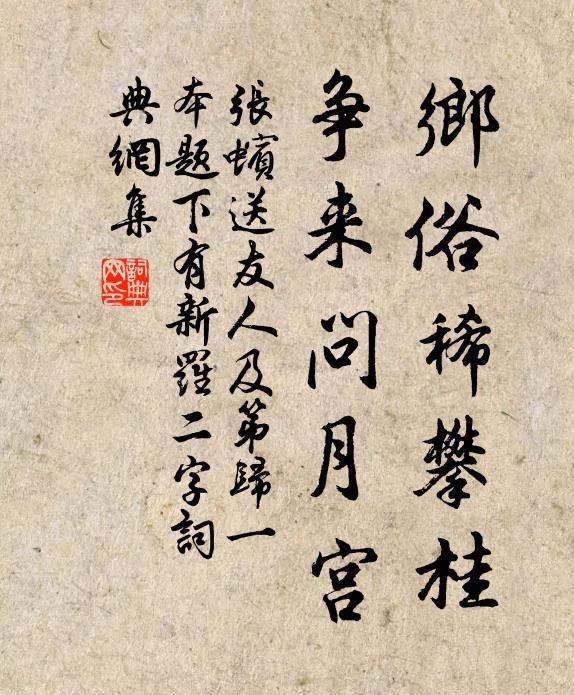 鄉俗稀攀桂
争来問月宫
張蠙送友人及第歸一
本題下有新羅二字詞
典網集
詞典網印